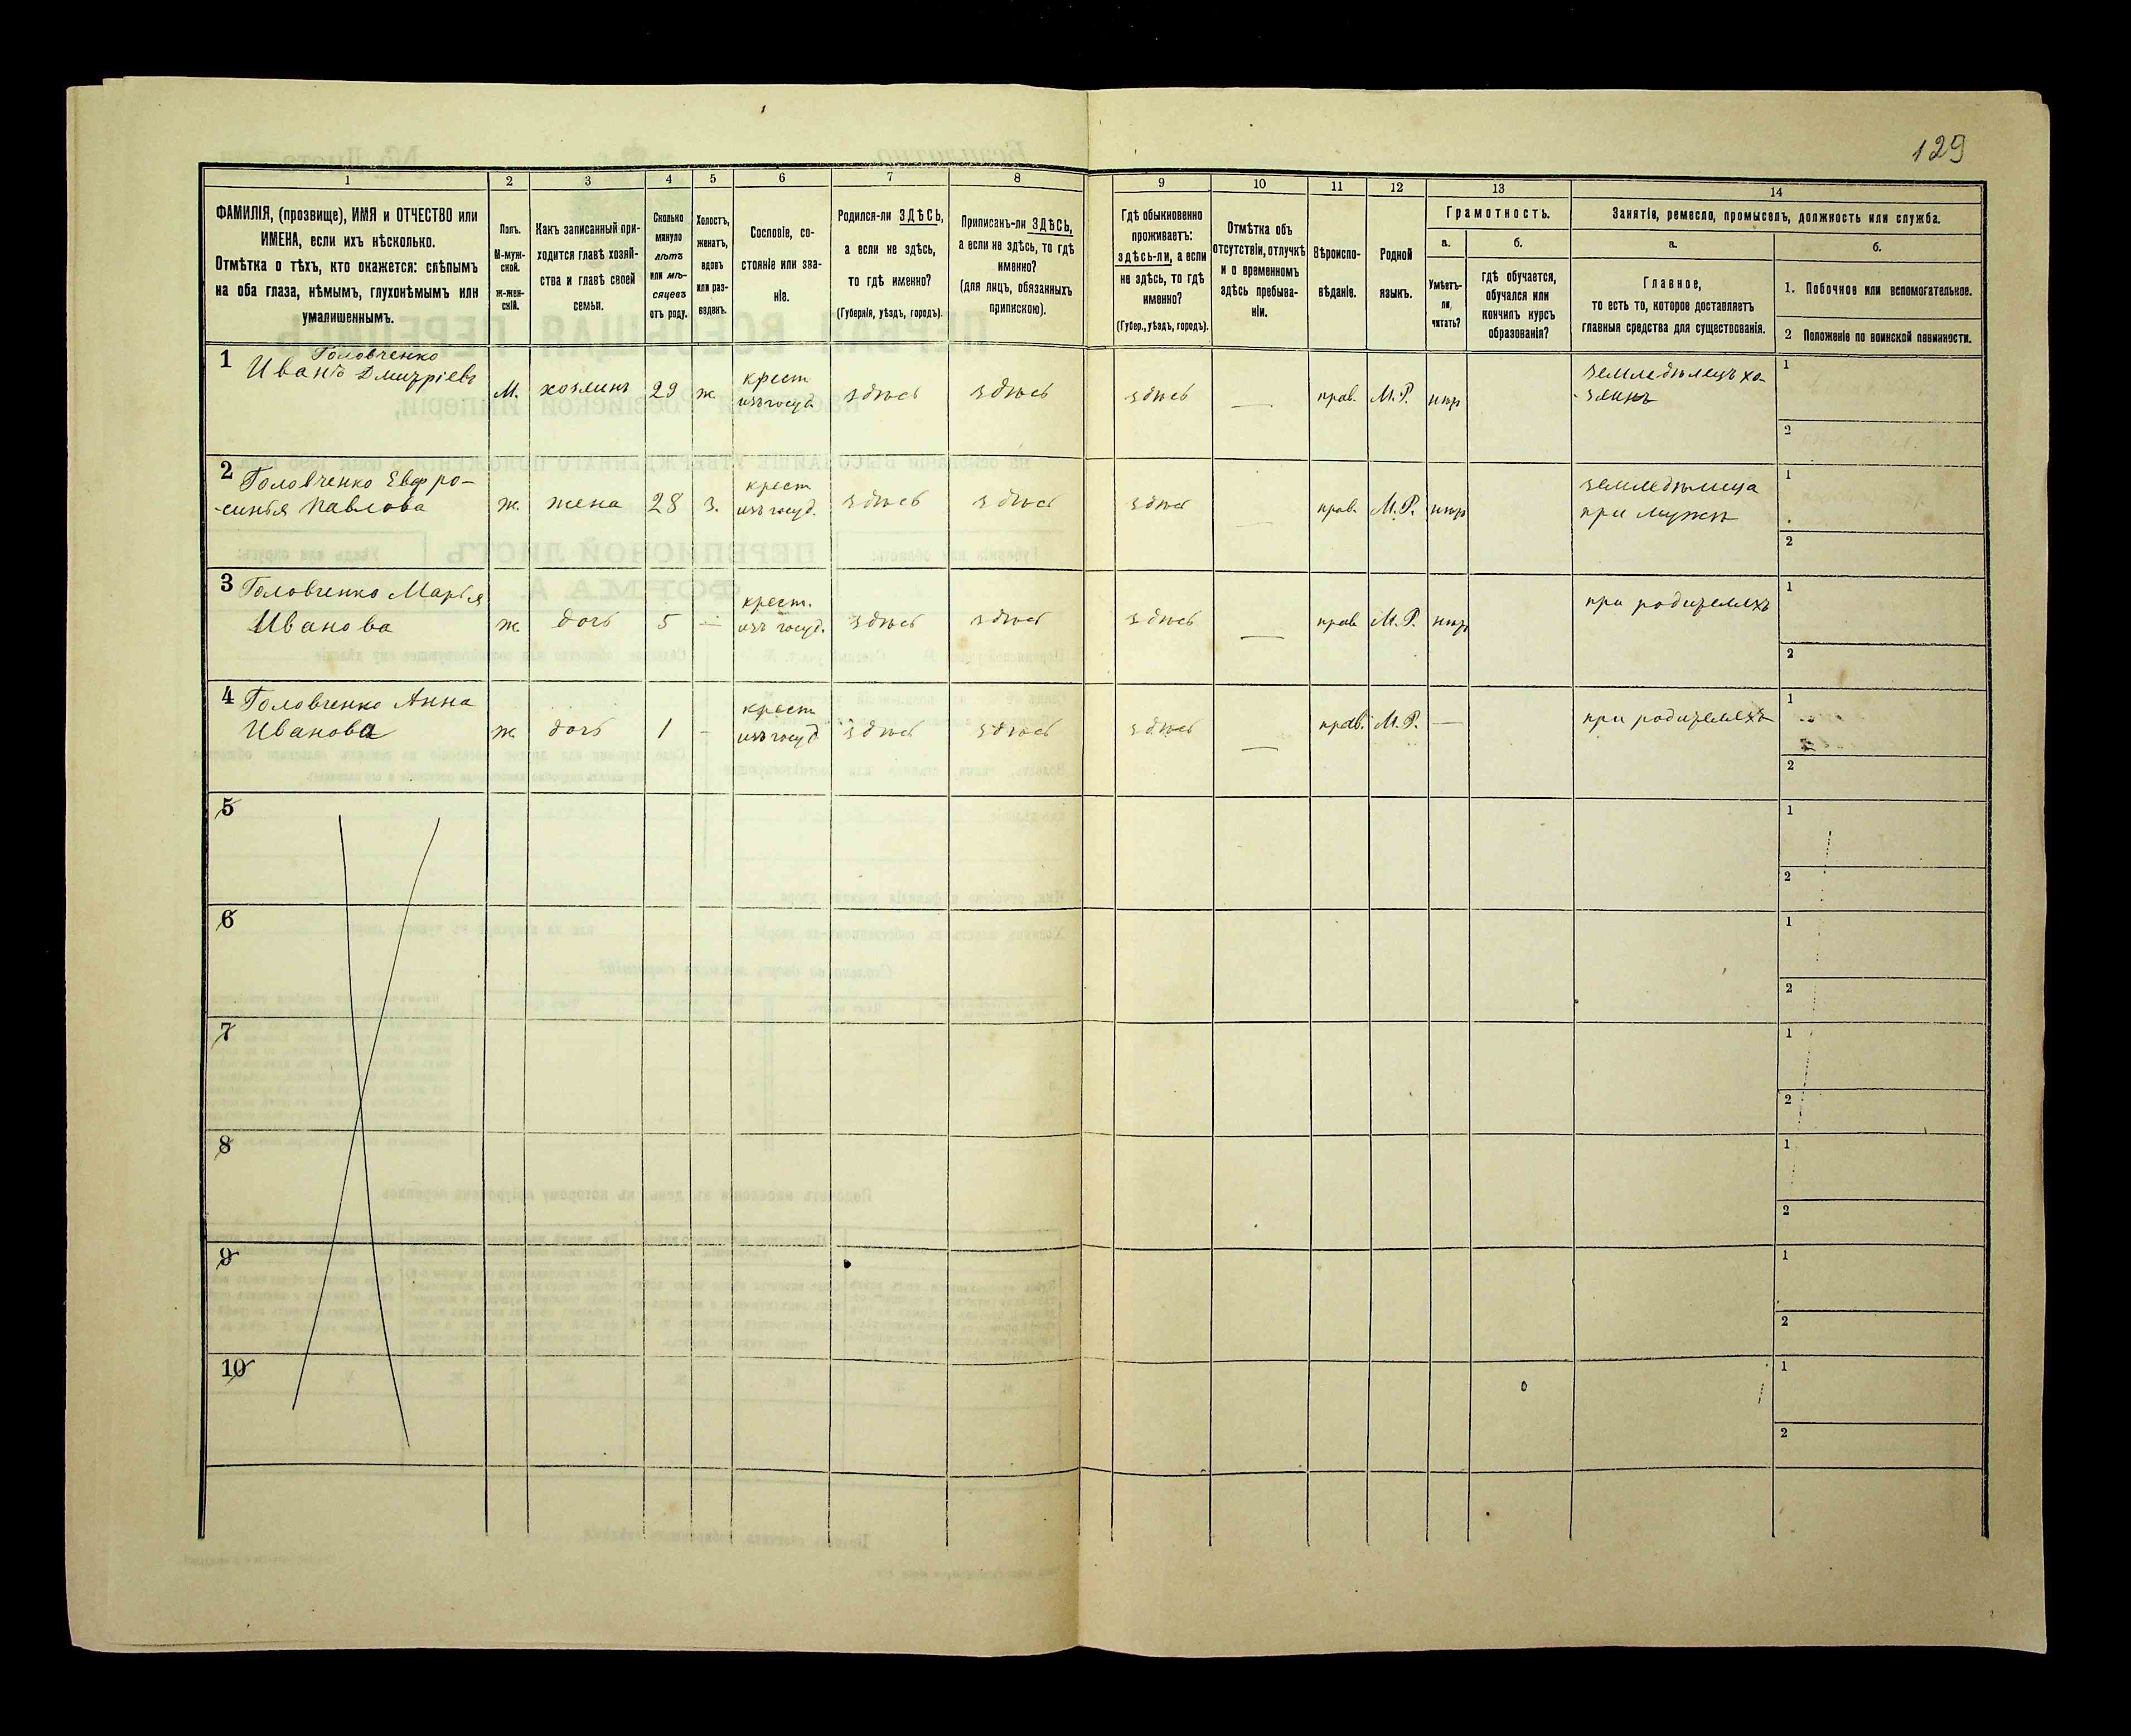 129
1 2 3 4 5 6 7 8 9 10 11 12 13 14
ФАМИЛІЯ, (прозвище), ИМЯ и ОТЧЕСТВО или
ИМЕНА, если ихъ нѣсколько.
Отмѣтка о тѣхъ, кто окажется: слѣпымъ
на оба глаза, нѣмымъ, глухонѣмымъ или
умалишеннымъ.
Полъ.
М-муж-
ской.
ж-жен-
скій.
Какъ записанный при-
ходится главѣ хозяй-
ства и главѣ своей
семьи.
Сколько
минуло
лѣтъ
или мѣ-
сяцевъ
отъ роду.
Холостъ,
женатъ,
вдовъ
или раз-
веденъ.
Сословіе, со-
стояніе или зва-
ніе.
Родился-ли ЗДѢСЬ,
а если не здѣсь,
то гдѣ именно?
(Губернія, уѣздъ, городъ).
Приписанъ-ли ЗДѢСЬ,
а если не здѣсь, то гдѣ
именно?
(для лицъ, обязанныхъ
припискою).
Гдѣ обыкновенно
проживаетъ:
здѣсь-ли, а если
не здѣсь, то гдѣ
именно?
(Губер., уѣздъ, городъ).
Отмѣтка объ
отсутствіи, отлучкѣ
и о временномъ
здѣсь пребыва-
ніи.
Вѣроиспо-
вѣданіе.
Родной
языкъ.
Грамотность.
а.
Умѣетъ-
ли
читать?
б.
гдѣ обучается,
обучался или
кончилъ курсъ
образованія?
Занятія, ремесло, промыселъ, должность или служба.
а.
Главное,
то есть то, которое доставляетъ
главныя средства для существованія.
б.
1. Побочное или вспомогательное.
2 Положеніе по воинской повинности.
1 Головченко
Иванъ Дмитріевъ
М. хозяинъ 29 ж. крест
изъ госуд. здѣсь здѣсь здѣсь — прав. М.Р. нтр
земледѣлецъ хо-
зяинъ
1
2
2 Головченко Евфро-
синья Павлова
ж. жена 28 з. крест
изъ госуд. здѣсь здѣсь здѣсь — прав. М.Р. нтр
земледѣлица
при мужѣ
1
2
3 Головченко Марья
Иванова
ж. дочь 5 — крест.
изъ госуд. здѣсь здѣсь здѣсь — прав. М.Р. нтр
при родителяхъ
1
2
4 Головченко Анна
Иванова
ж. дочь 1 - крест
изъ госуд здѣсь здѣсь здѣсь — прав. М.Р. —
при родителяхъ
1
2
5
1
2
6
1
2
7
1
2
8
1
2
9
1
2
10
1
2